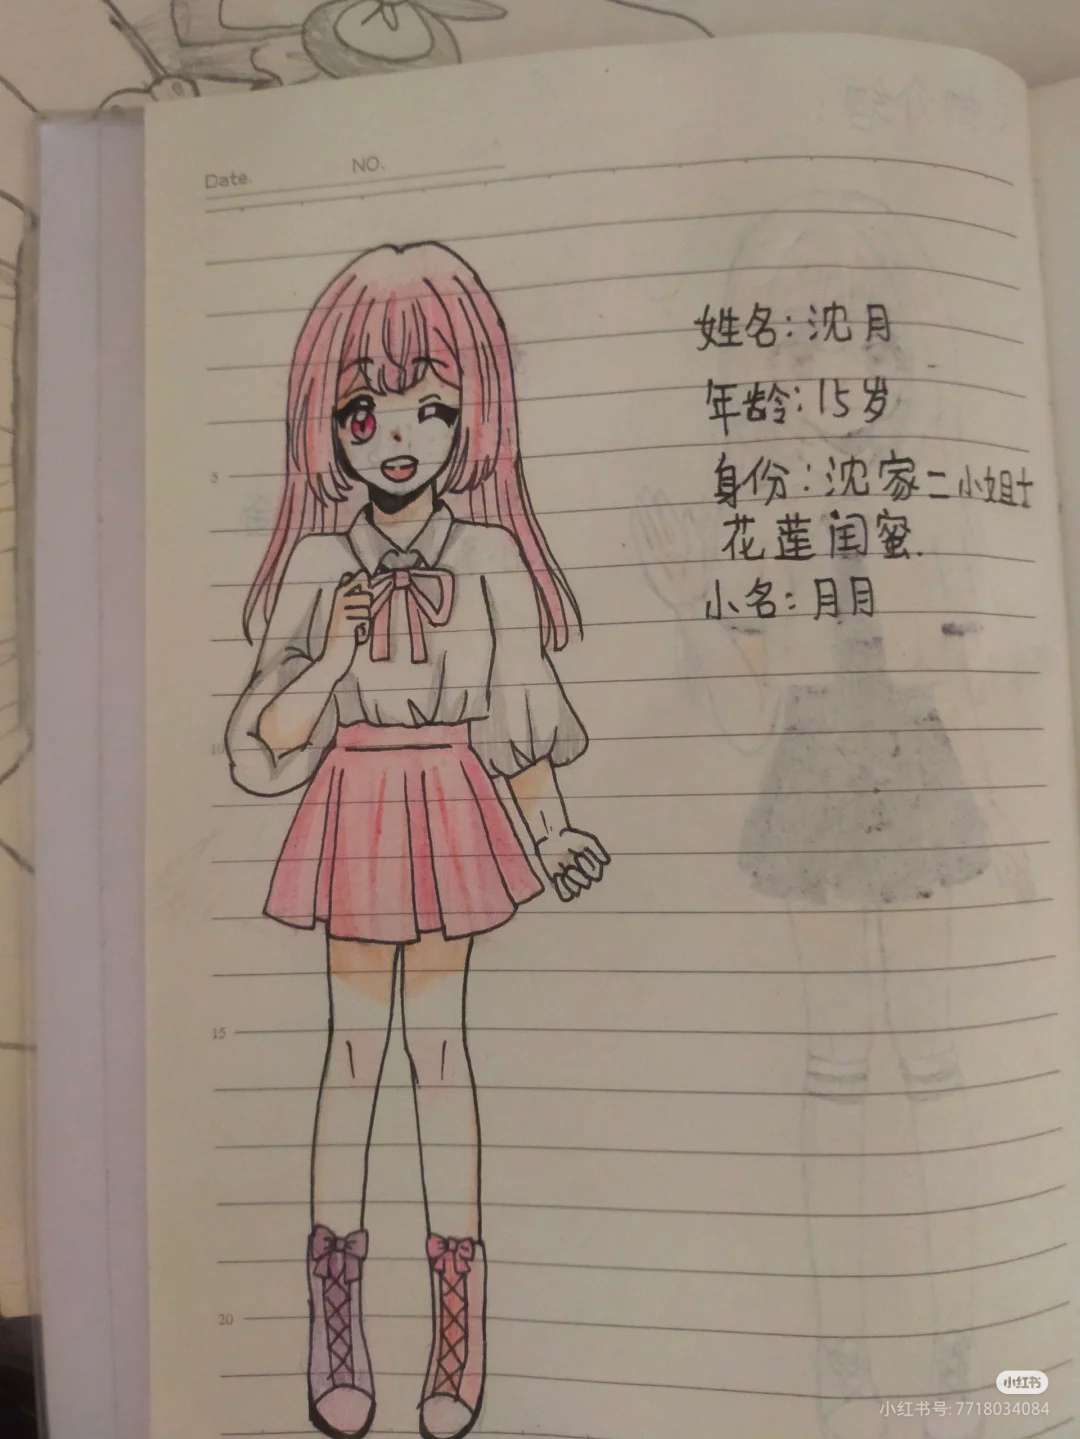 Date.
NO.
姓名:沈月
年龄:15岁
身份:沈家二小姐
花莲闺蜜.
小名:月月
5
10
15
20
小红书
小红书号:7718034084